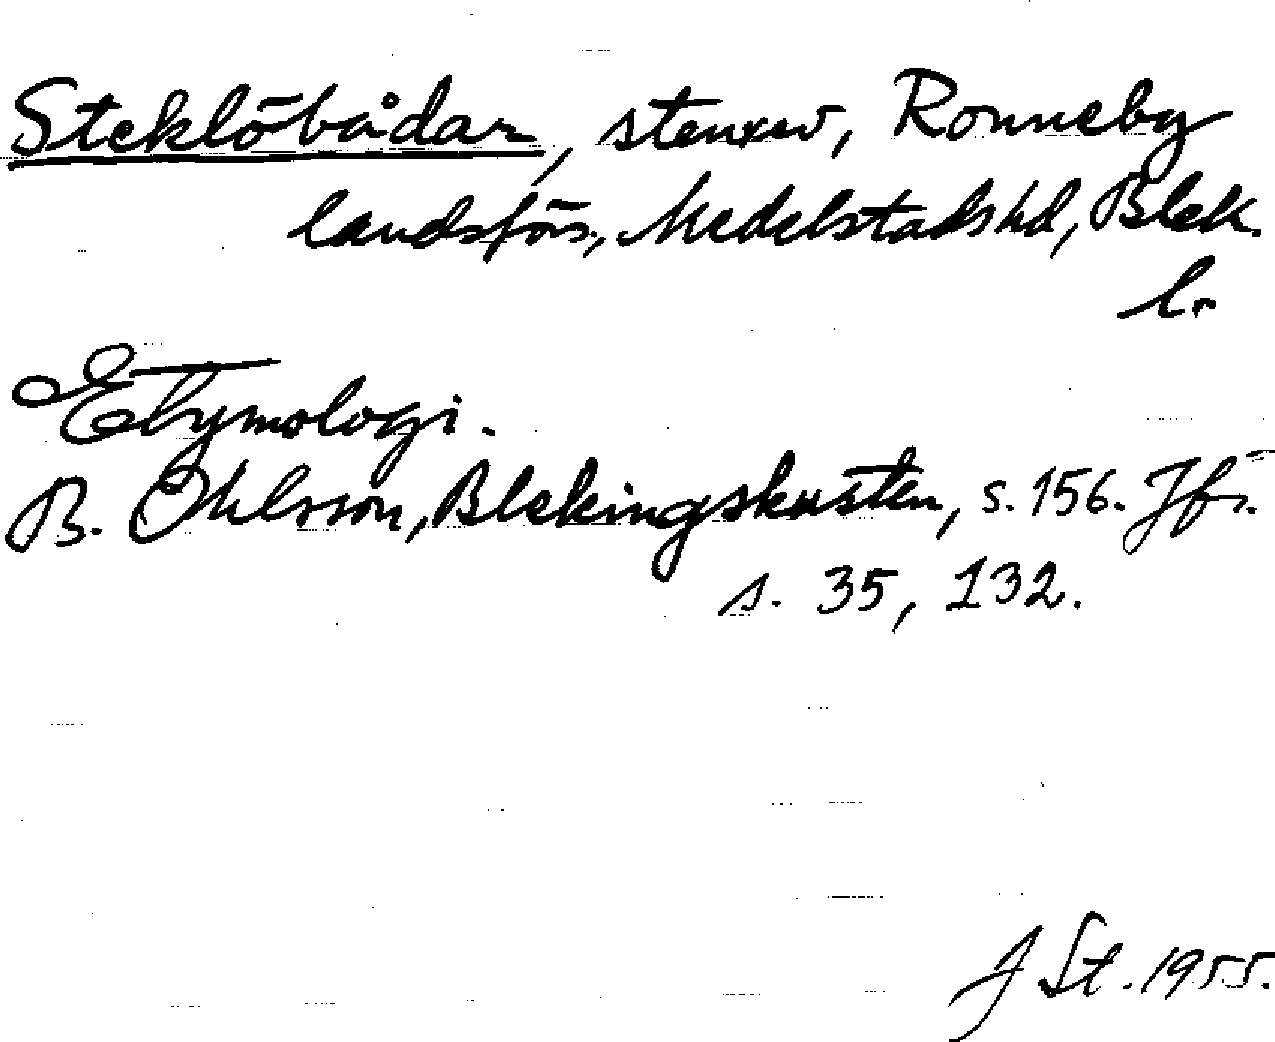 Steklöbådar, stenrev, Ronneby
landsförs., Medelstads hd, Blek.
l.
Etymologi.
B. Ohlsson, Blekingskusten, s. 156. Jfr.
s. 35, 132.
J St. 1955.